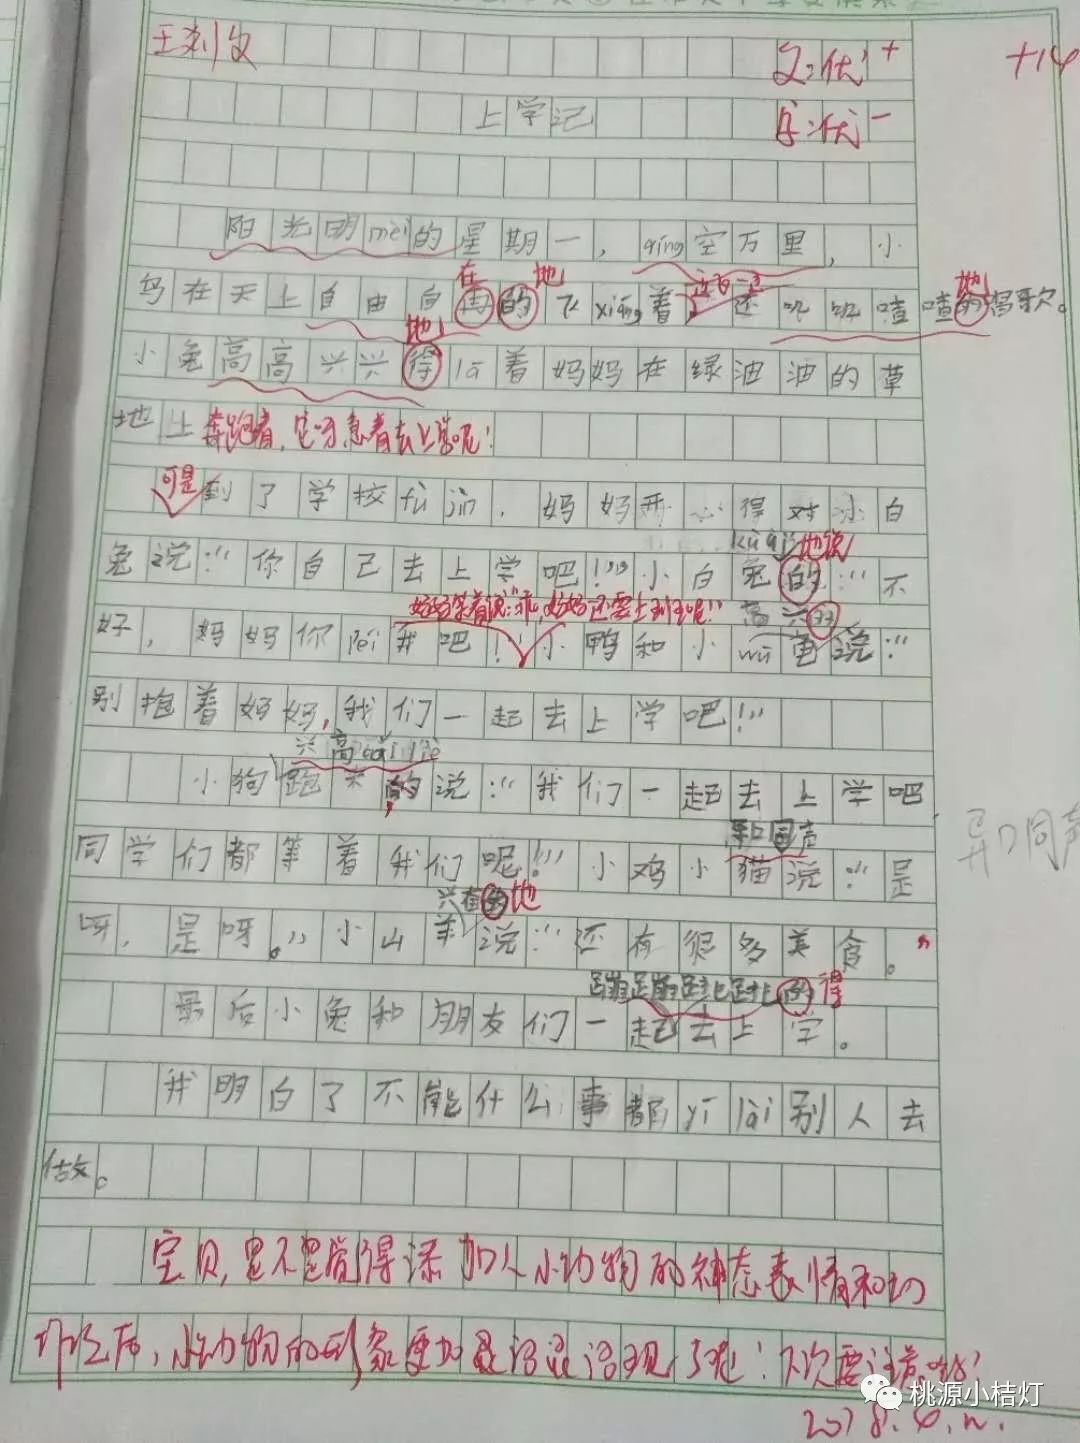 王刘文 文:优+ +14
上学记 字:优-
阳光明mèi的星期一，qíng空万里，小
在 地 边飞一边 地
鸟在天上自由自由的飞xiáng着，还叽叽喳喳的唱歌。
地
小兔高高兴兴得lā着妈妈在绿油油的草
地上奔跑着，它呀，急着去上学呢！
可是到了学校fù jìn，妈妈开心得对小白
地说
兔说："你自己去上学吧！"小白兔的："不
妈妈笑着说："乖，妈妈还要上班呢！" 高兴的
好，妈妈你péi我吧！小鸭和小wū龟说："
别抱着妈妈，我们一起去上学吧！"
兴高cǎi liè
小狗跑来的说："我们一起去上学吧
异口同声
同学们都等着我们呢！"小鸡小猫说："是 异口同声
地
呀，是呀。"小山羊说："还有很多美食。"
蹦蹦蹦跳跳的得
最后小兔和朋友们一起去上学。
我明白了不能什么事都yī lài别人去
做。
宝贝，是不是觉得添加入小动物的神态表情和动
作之后，小动物的形象更加灵活灵活现了呢！下次要注意哦！
桃源小桔灯
2018.6.11.